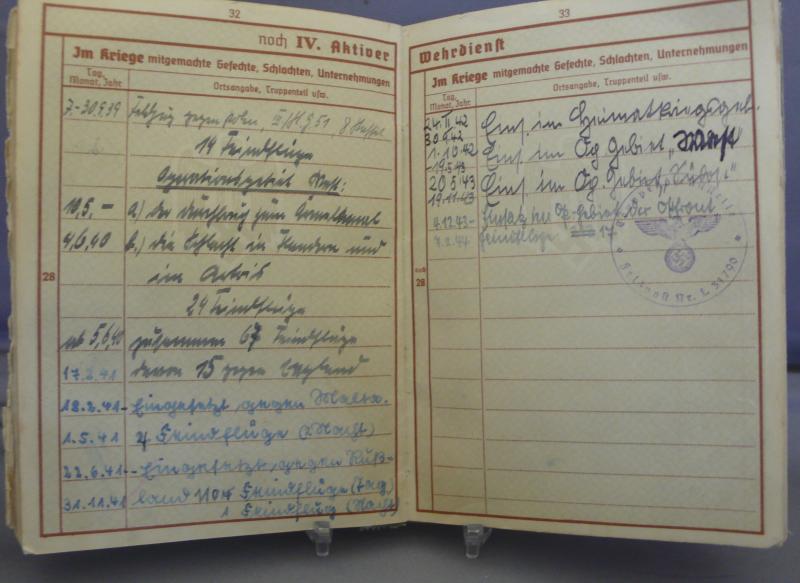 32
noch IV. Aktiver
Im Kriege mitgemachte Gefechte, Schlachten, Unternehmungen
Tag, Monat, Jahr
Ortsangabe, Truppenteil usw.
7.-30.9.39 Feldzug gegen Polen, III/K.G. 51, 8. Staffel
14 Feindflüge
Operationsgebiet West:
10.5.- a.) der Durchbruch zum Ärmelkanal
4.6.40 b.) die Schlacht in Flandern und
im Artois
24 Feindflüge
ab 5.6.40 zusammen 67 Feindflüge
17.2.41 davon 15 gegen England
18.2.41- Eingesetzt gegen Malta.
1.5.41 4 Feindflüge (Nacht)
22.6.41- Eingesetzt gegen Ruß-
31.11.41 land 110 Feindflüge (Tag)
1 Feindflug (Nacht)
28
33
Wehrdienst
Im Kriege mitgemachte Gefechte, Schlachten, Unternehmungen
Tag, Monat, Jahr
Ortsangabe, Truppenteil usw.
24.II.42
30.9.42 Eins. im Heimatkriegsgeb.
1.10.42
-19.5.43 Eins. im Op. Gebiet „West"
20.5.43
19.11.43 Eins. im Op. Gebiet „Südost"
4.12.43- Einsatz im Op. Gebiet der Ostfront
7.2.44 Feindflüge 17
noch
28
Feldpost Nr. L 34790